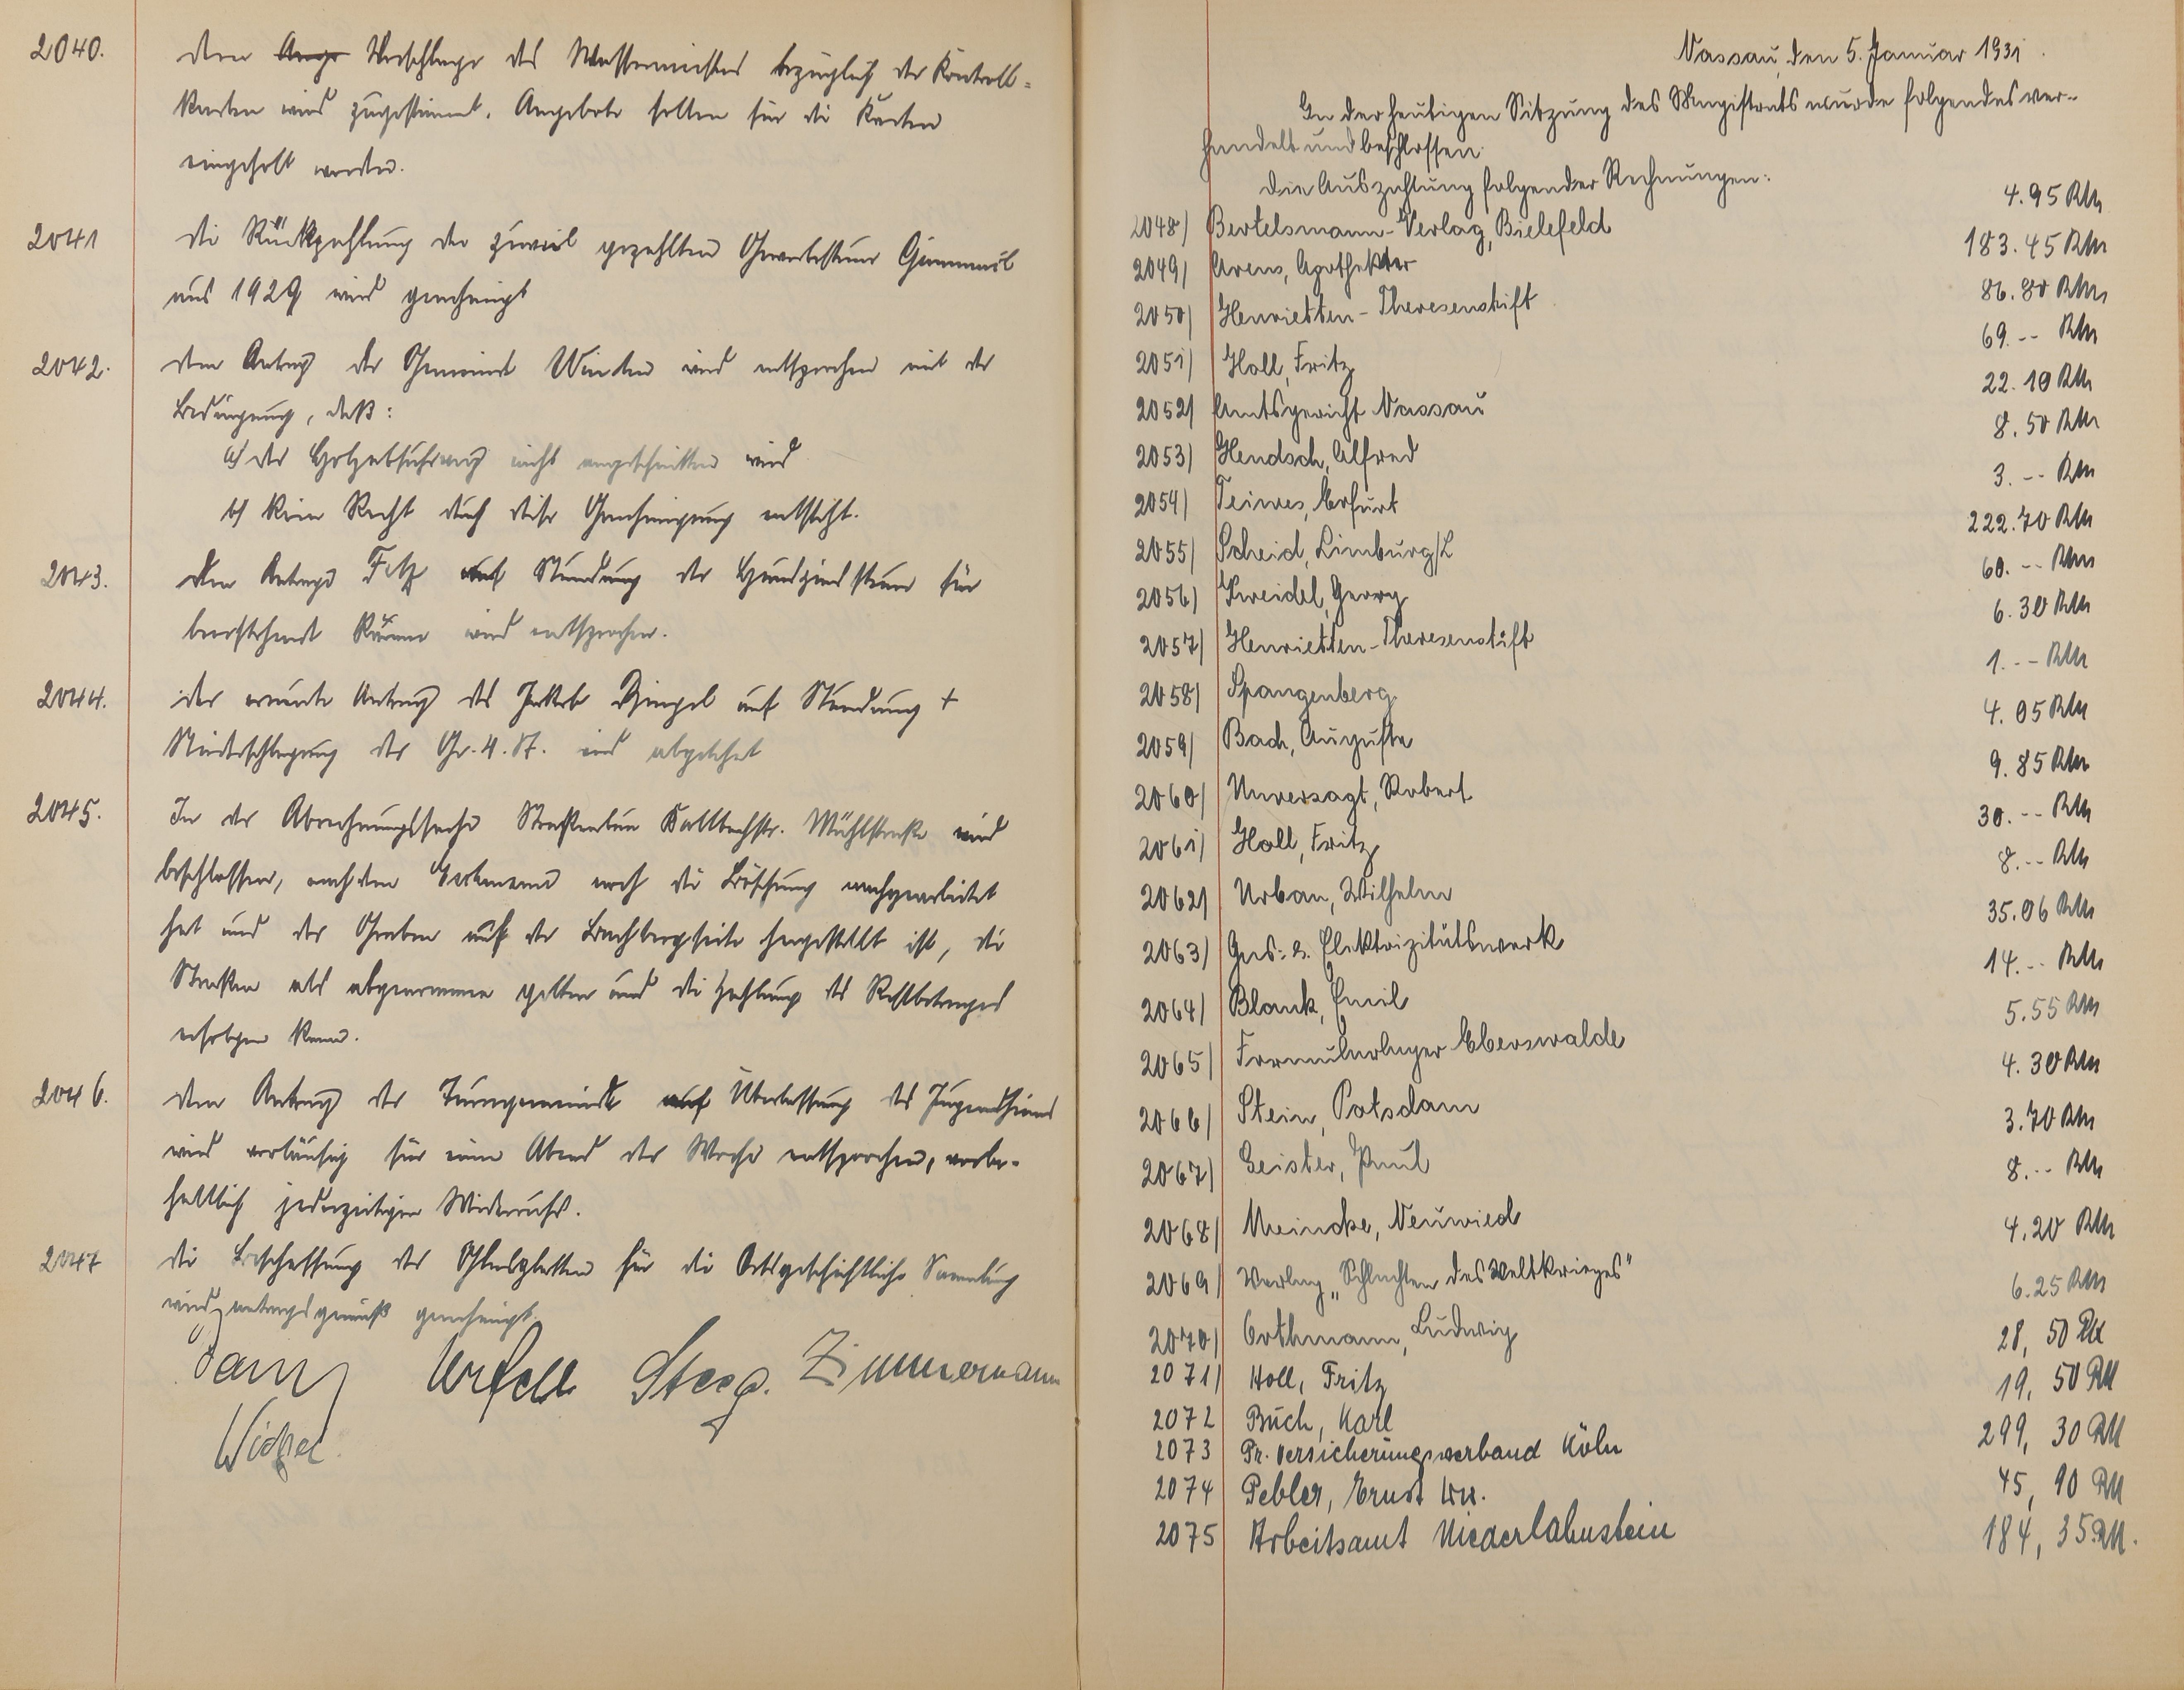 2040. Dem Ange Vorschlage des Wassermeisters bezüglich der Kontroll-
karten wird zugestimmt. Angebote sollen für die Karten
eingeholt werden.
2041 Die Rückzahlung der zuviel gezahlten Gewerbesteuer
aus 1929 wird genehmigt
2042. Dem Antrag der Gemeinde Winden wird entsprochen mit der
Bedingung, daß:
a) der Holzabfuhrweg nicht angeschnitten wird
b) kein Recht durch diese Genehmigung entsteht.
2043. Dem Antrage auf Stundung der Hauszinssteuer für
leerstehende Räume wird entsprochen.
2044. Der erneute Antrag des Jakob auf Stundung +
Niederschlagung der wird abgelehnt
2045. In der Abrechnungssache Straßenbau Kaltbachstr. Mühlstraße wird
beschlossen, nachdem noch die Böschung nachgearbeitet
hat und der Graben auf der Bachbergseite hergestellt ist, die
Straßen als abgenommen gelten und die Zahlung des Restbetrages
erfolgen kann.
2046. Dem Antrag der Turngemeinde auf Überlassung des Jugendheims
wird vorläufig für einen Abend der Woche entsprochen, vorbe-
haltlich jederzeitigen Widerrufs.
2047 Die Beschaffung der Glasplatten für die Ortsgeschichtliche Sammlung
wird antragsgemäß genehmigt.
Urfell Steeg. Zimmermann
Nassau, den 5. Januar 1931.
In der heutigen Sitzung des Magistrats wurde folgendes ver-
handelt und beschlossen:
Die Auszahlung folgender Rechnungen:
2048) Bertelsmann-Verlag, Bielefeld 4.95 RM
2049) Arens, Apotheker 183.45 RM
2050) Henrietten-Theresenstift 86.80 RM
2051) Holl, Fritz 69.-- RM
2052) Amtsgericht Nassau 22.10 RM
2053) Hendsch, Alfred 8.50 RM
2054) Teiwes, Erfurt 3.-- RM
2055) Scheid, Limburg/L 222.70 RM
2056) Kreidel, Georg 60.-- RM
2057) Henrietten-Theresenstift 6.30 RM
2058) Spangenberg 1.-- RM
2059) Bach, Auguste 4.05 RM
2060) Unversagt, Robert 9.85 RM
2061) Holl, Fritz 30.-- RM
2062) Urban, Wilhelm 8.-- RM
2063) Gas- u. Elektrizitätswerk 35.06 RM
2064) Blank, Emil 14.-- RM
2065) Formularlager Eberswalde 5.55 RM
2066) Stein, Potsdam 4.30 RM
2067) Geister, Paul 3.70 RM
2068) Meincke, Neuwied 8.-- RM
2069) Verlag „Schlachten des Weltkrieges" 4.20 RM
2070) Orthmann, Ludwig 6.25 RM
2071) Holl, Fritz 28,50 RM
2072 Buch, Karl 19,50 RM
2073 Pr. Versicherungsverband Köln 299,30 RM
2074 Pebler, Ernst Ww. 45,90 RM
2075 Arbeitsamt Niederlahnstein 184,35 RM.